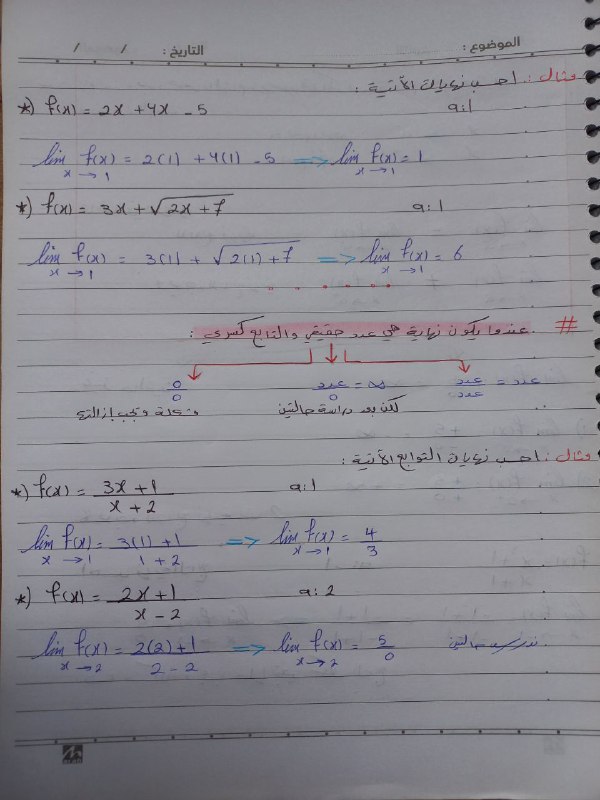 الموضوع : التاريخ : / /
مثال : احسب نهايات الآتية :
*) f(x) = 2x + 4x - 5 a: 1
lim x→1 f(x) = 2(1) + 4(1) - 5 ⟹ lim x→1 f(x) = 1
*) f(x) = 3x + √(2x + 7) a: 1
lim x→1 f(x) = 3(1) + √(2(1) + 7) ⟹ lim x→1 f(x) = 6
# عندما يكون نهاية هي عدد حقيقي والتابع كسري :
عدد/عدد = عدد عدد/0 = ∞ 0/0
لكن بعد دراسة حالتين مشكلة ويجب إزالتها
مثال : احسب نهايات التوابع الآتية :
*) f(x) = (3x + 1)/(x + 2) a: 1
lim x→1 f(x) = (3(1) + 1)/(1 + 2) ⟹ lim x→1 f(x) = 4/3
*) f(x) = (2x + 1)/(x - 2) a: 2
lim x→2 f(x) = (2(2) + 1)/(2 - 2) ⟹ lim x→2 f(x) = 5/0 ندرس حالتين